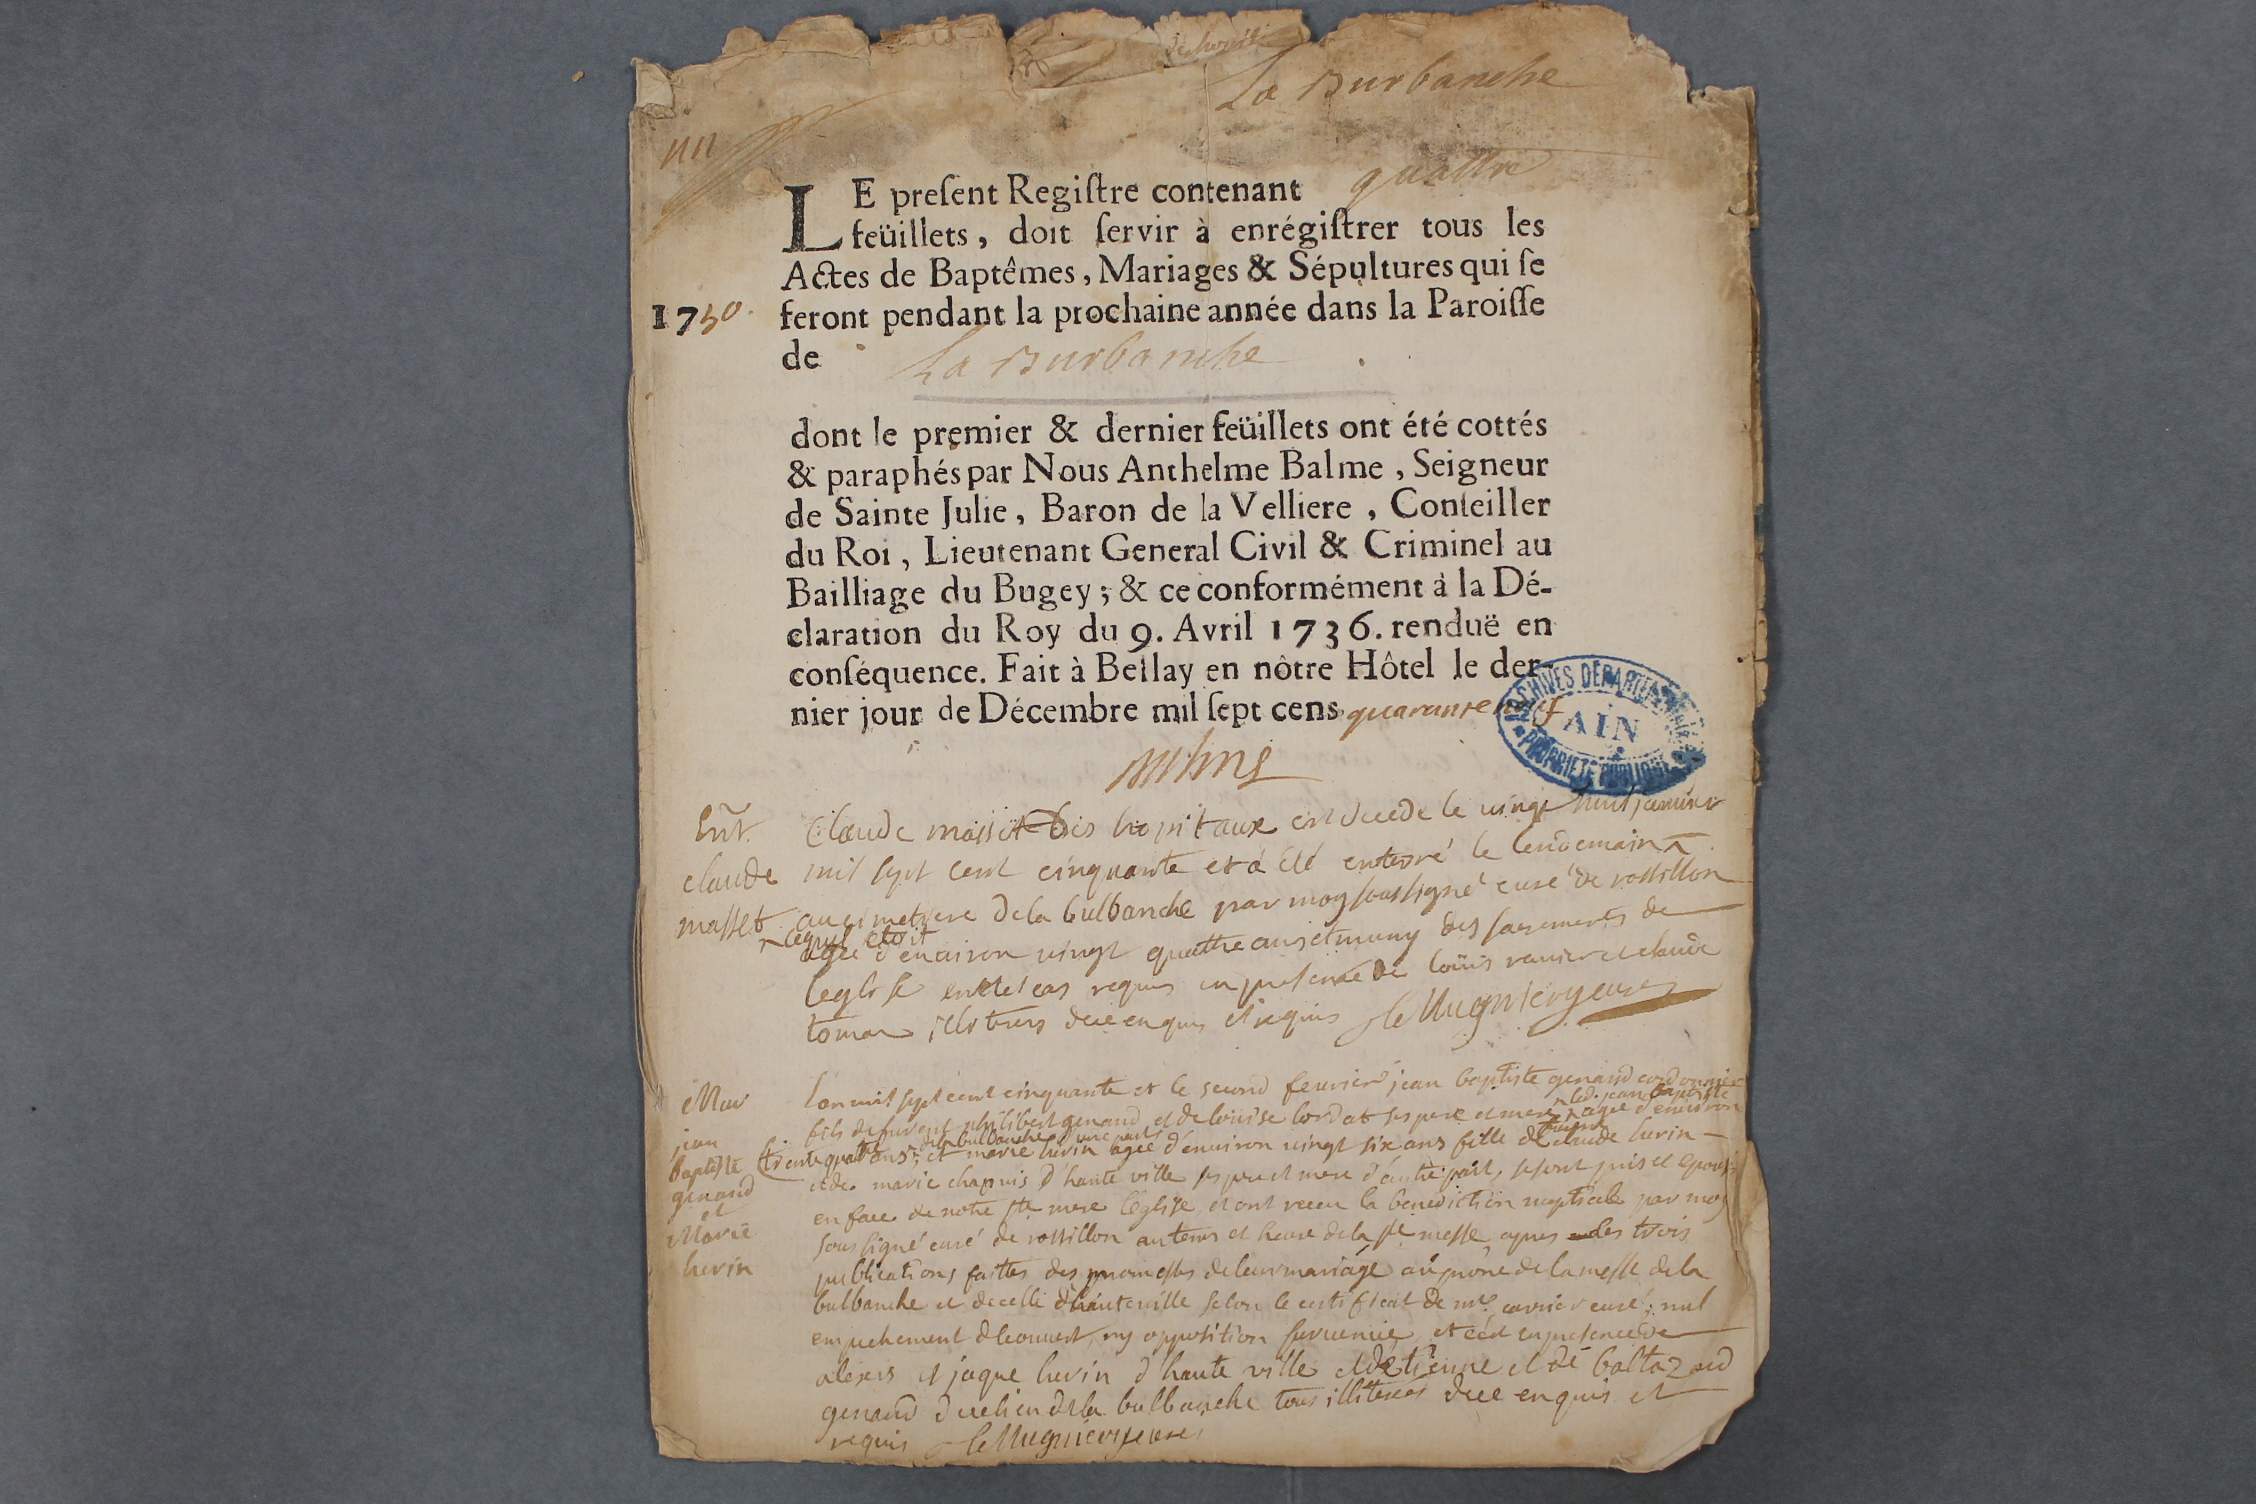 La Burbanche
LE preſent Regiſtre contenant quattre
feüillets, doit ſervir à enrégiſtrer tous les
Actes de Baptêmes, Mariages & Sépultures qui ſe
1750. feront pendant la prochaine année dans la Paroiſſe
de La Burbanche
dont le premier & dernier feüillets ont été cottés
& paraphés par Nous Anthelme Balme, Seigneur
de Sainte Julie, Baron de la Velliere, Conſeiller
du Roi, Lieutenant General Civil & Criminel au
Bailliage du Bugey; & ce conformément à la Dé-
claration du Roy du 9. Avril 1736. renduë en
conſéquence. Fait à Bellay en nôtre Hôtel le der-
nier jour de Décembre mil ſept cens quarante neuf
ARCHIVES DEPARTEMENTALES
AIN
PROPRIETE PUBLIQUE
Ent.
claude
masset
Claude masset des hopitaux est decede le vingt huit janvier
mil sept cent cinquante et a été enterré le lendemain
au cimetiere de la bulbanche par moy soussigné curé de rossillon
lequel etoit
agée d'environ vingt quattre ans et muny des sacrements de
leglise en tel cas requis en presence de loüis ravier et claude
toman illiterés de ce enquis et requis
Mar
jean
baptiste
genaud
et
Marie
hevin
lan mil sept cent cinquante et le second fevrier jean baptiste genaud cordonnier
fils de furent philibert genaud et de louise lordat ses pere et mere led. jean baptiste agée d'environ
trente quatre ans, de la bulbanche d'une part et marie hevin agée d'environ vingt six ans fille de claude hevin
et de marie chapuis d'haute ville ses pere et mere d'autre part, se sont pris et epousés
en face de notre ste mere l'eglise, et ont receu la benediction nuptiale par moy
sous signé curé de rossillon au tems et heure de la ste messe, apres les trois
publications faittes des promesses de leur mariage au prône de la messe de la
bulbanche et de celle d'hauteville selon le certificat de mre. carrier curé; nul
empechement decouvert, ny opposition survenüe, et ced en presence de
alexis et jaque hevin d'haute ville et d'etienne et de baltazard
genaud du lieu de la bulbanche tous illiterés de ce enquis et
requis